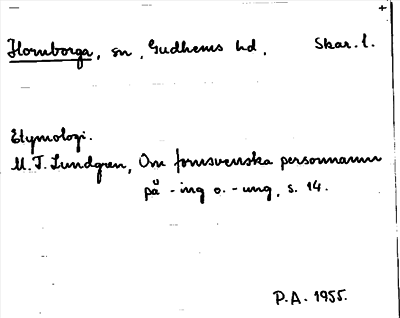 Hornborga, sn, Gudhems hd, Skar. l.
Etymologi.
M. F. Lundgren, Om fornsvenska personnamn
på -ing o. -ung, s. 14.
P.A. 1955.